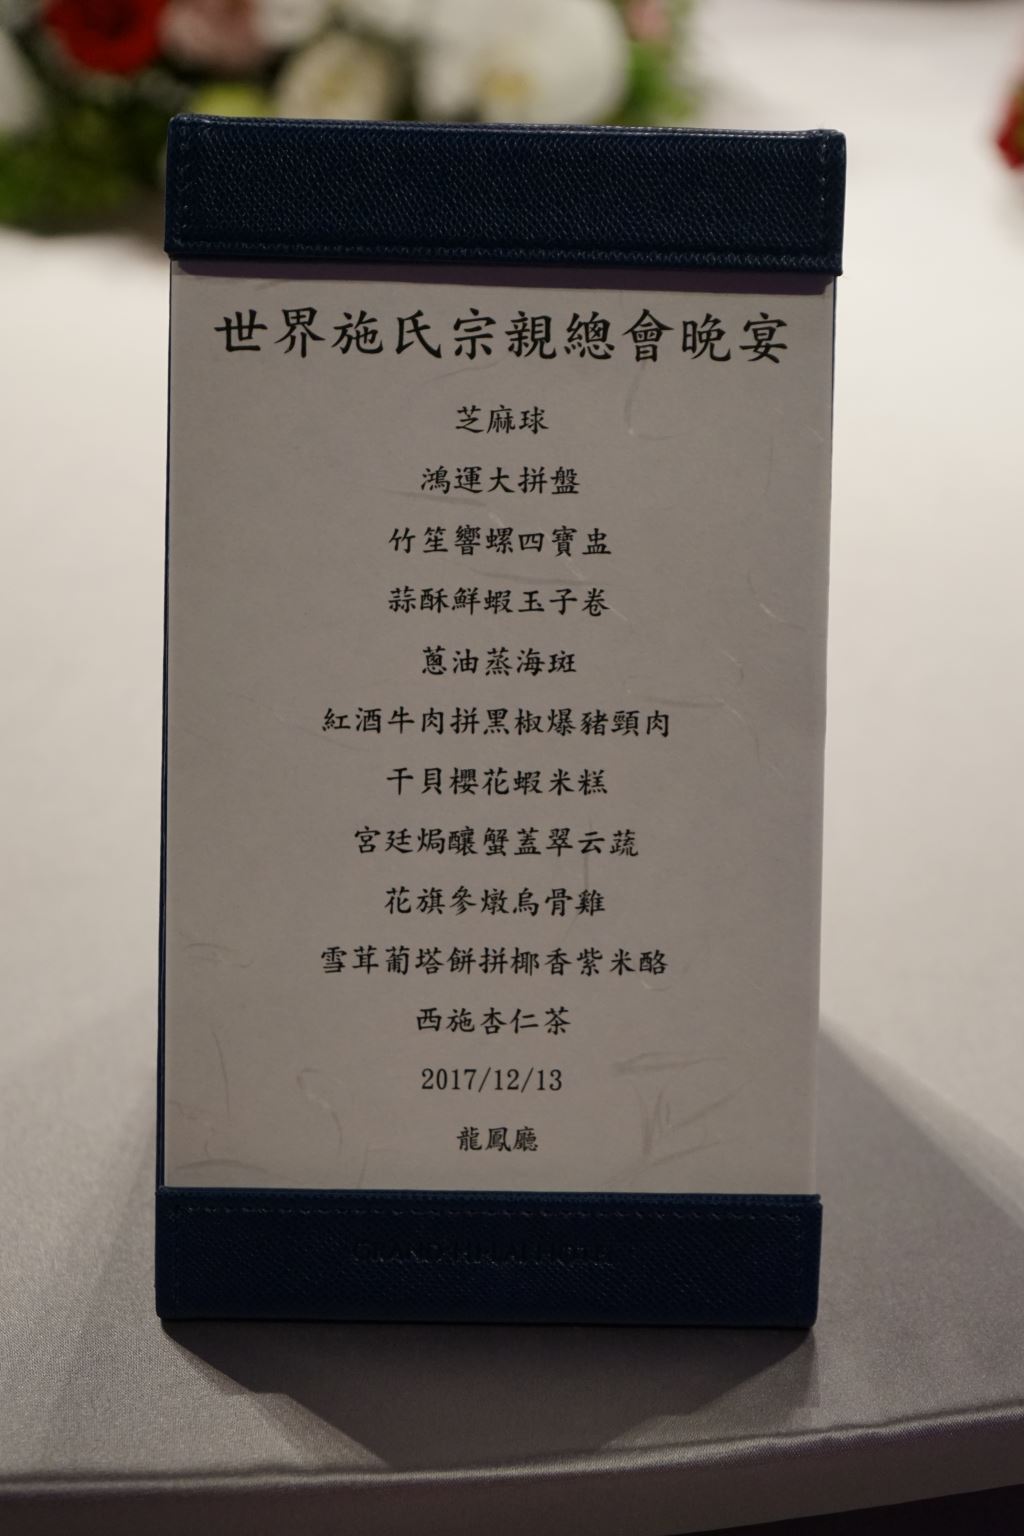 世界施氏宗親總會晚宴
芝麻球
鴻運大拼盤
竹笙響螺四寶盅
蒜酥鮮蝦玉子卷
蔥油蒸海斑
紅酒牛肉拼黑椒爆豬頸肉
干貝櫻花蝦米糕
宮廷焗釀蟹蓋翠云蔬
花旗參燉烏骨雞
雪茸葡塔餅拼椰香紫米酪
西施杏仁茶
2017/12/13
龍鳳廳
GRAND HI-LAI HOTEL